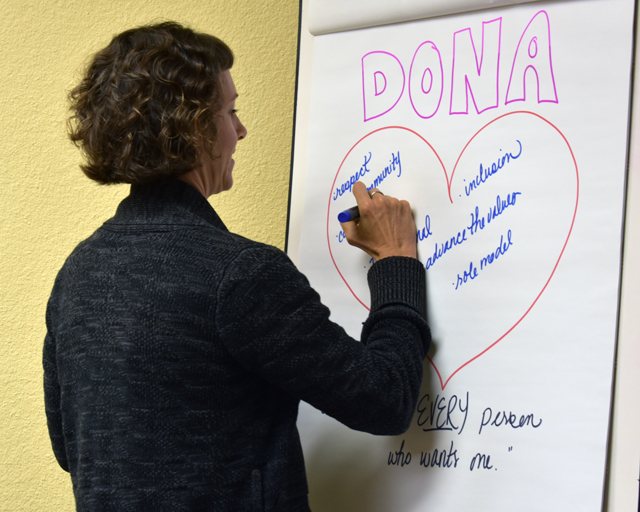 DONA
·respect
community
·inclusion
advance the values
·role model
EVERY person
who wants me."